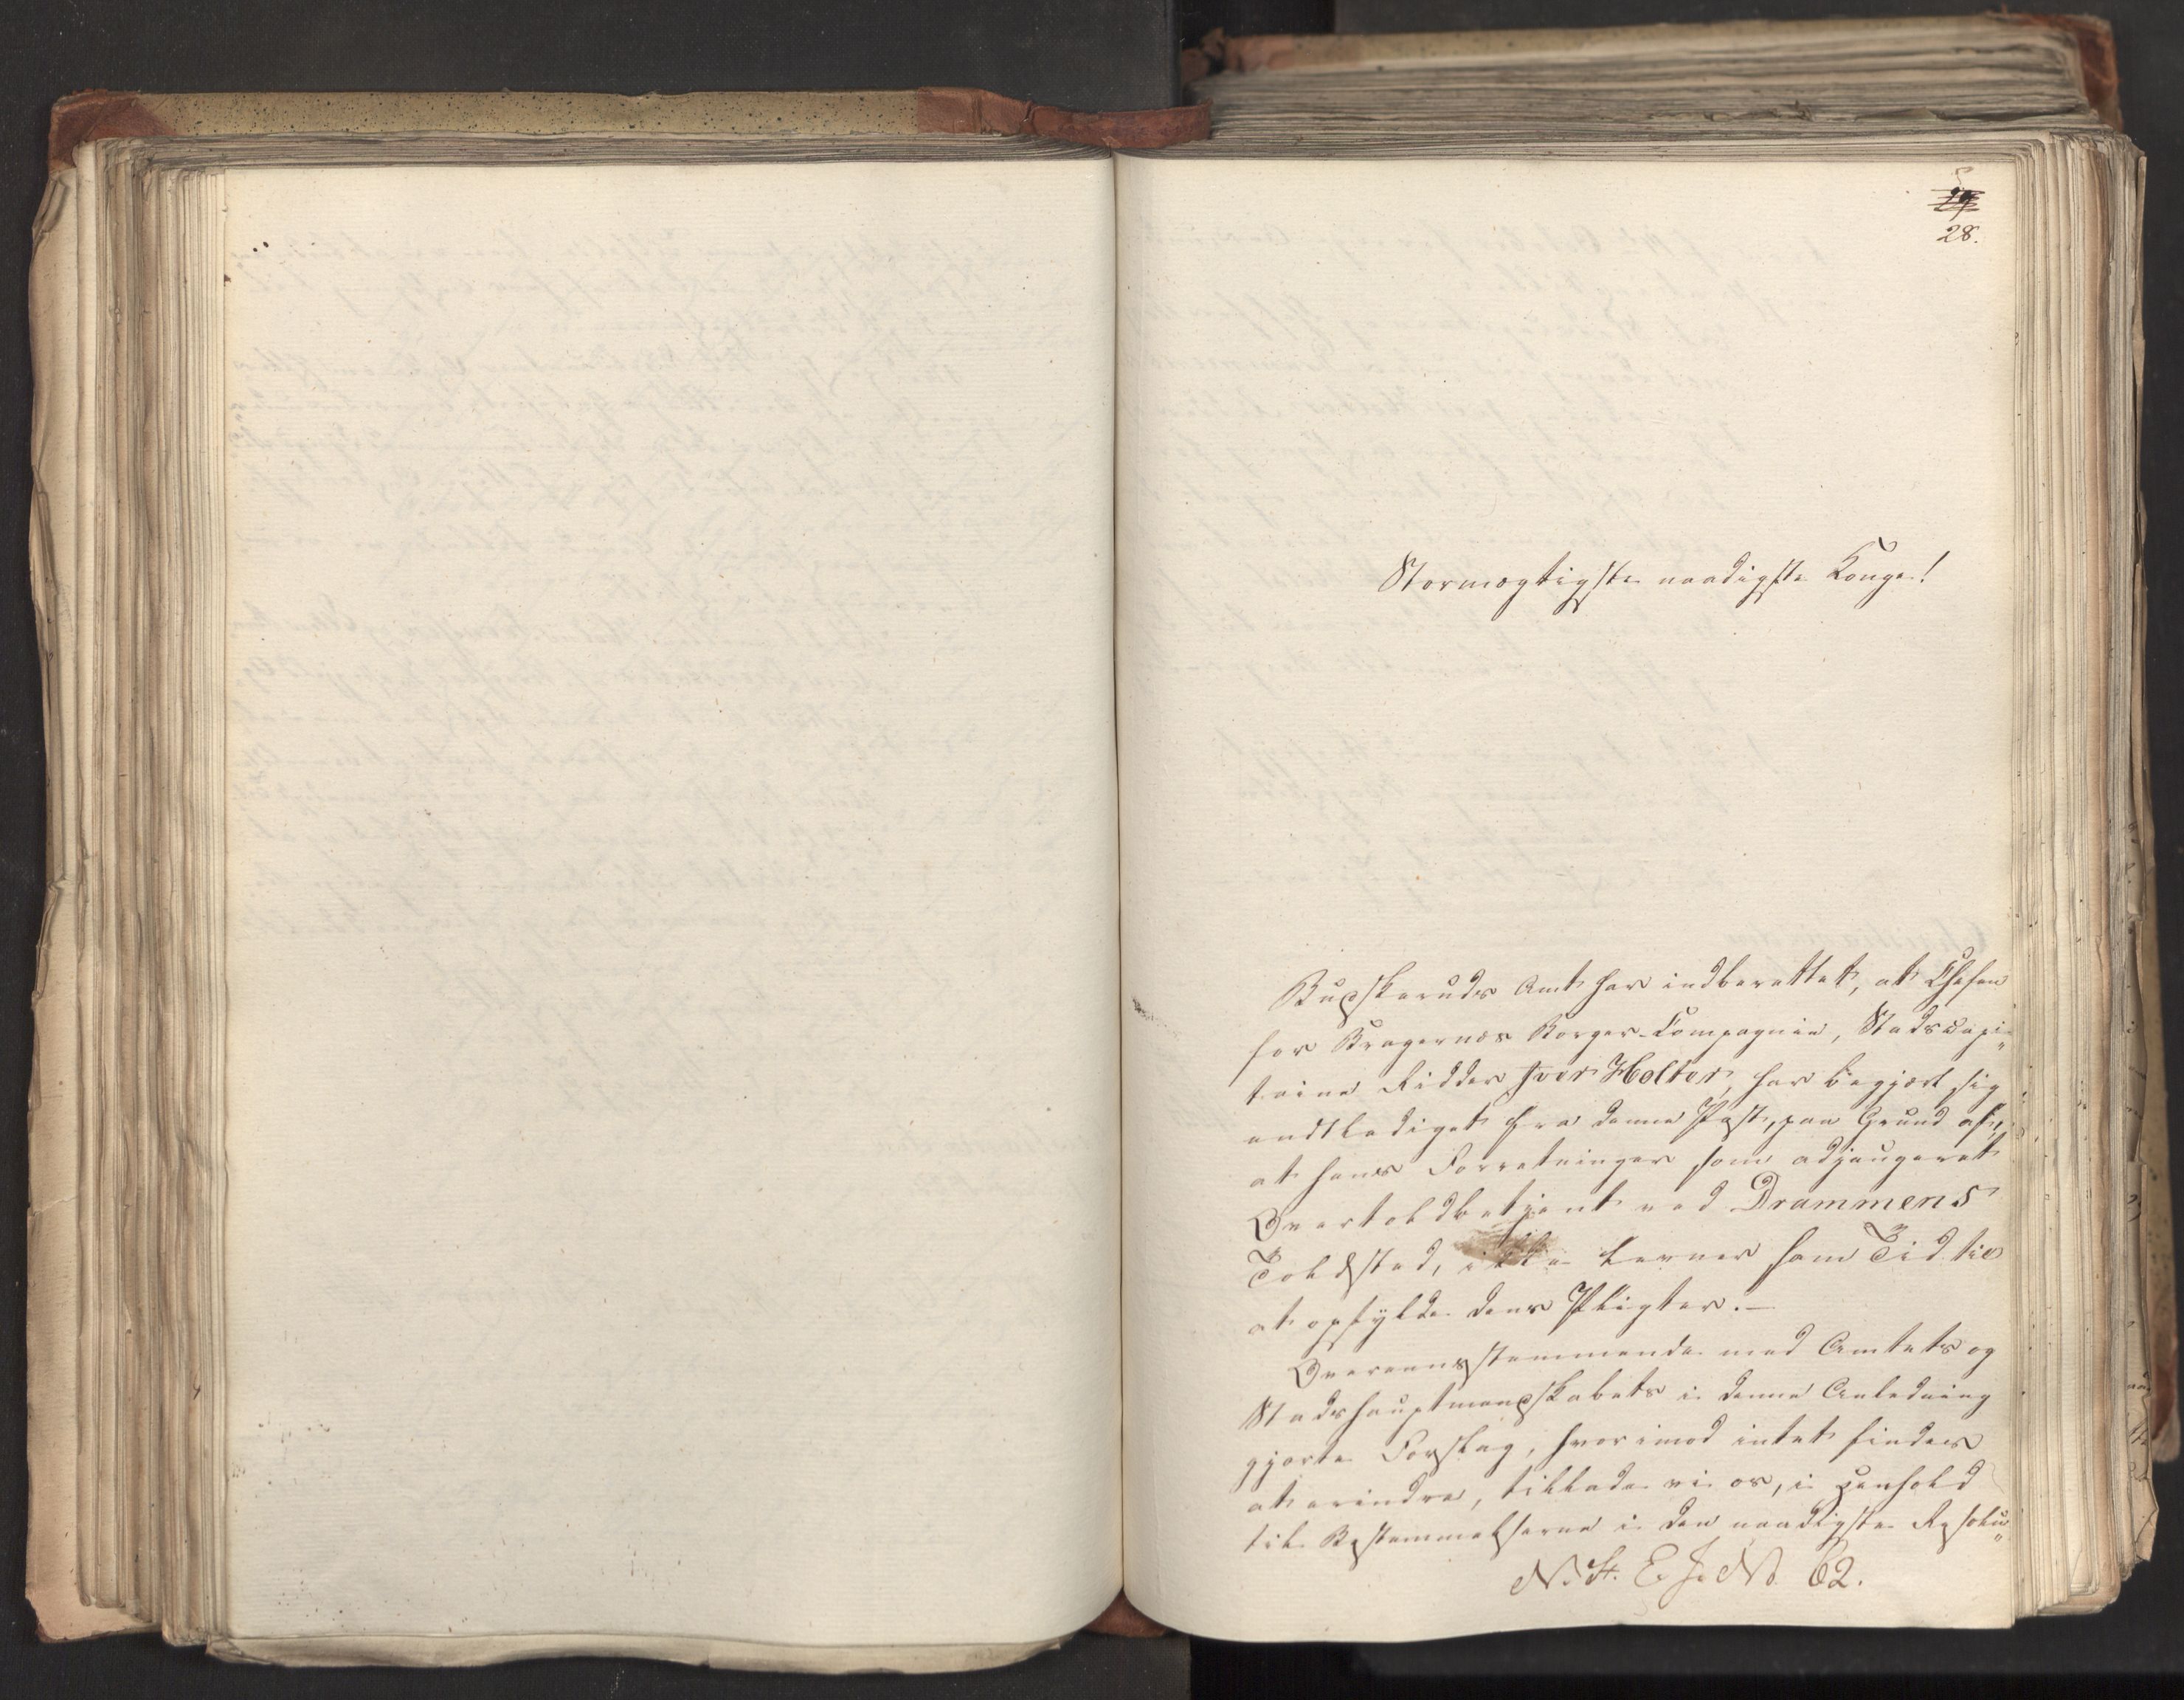 28.
Stormægtigste naadigste Konge!
Buskeruds Amt har indberettet, at Chefen
for Bragernæs Borger-Compagnie, Stadscapi-
taine Ridder Iver Holter, har begjært sig
entlediget fra denne Post, paa Grund af,
at hans Forretninger som adjungeret
Overtoldbetjent ved Drammens
Toldsted, ikke levner ham Tid til
at opfylde dens Pligter. —
Overeensstemmende med Amtets og
Stadshauptmandskabets i denne Anledning
gjorte Forslag, hvorimod intet findes
at erindre, tillade vi os, i Henhold
til Bestemmelserne i den naadigste Resolu-
N. St. E. J. No 62.